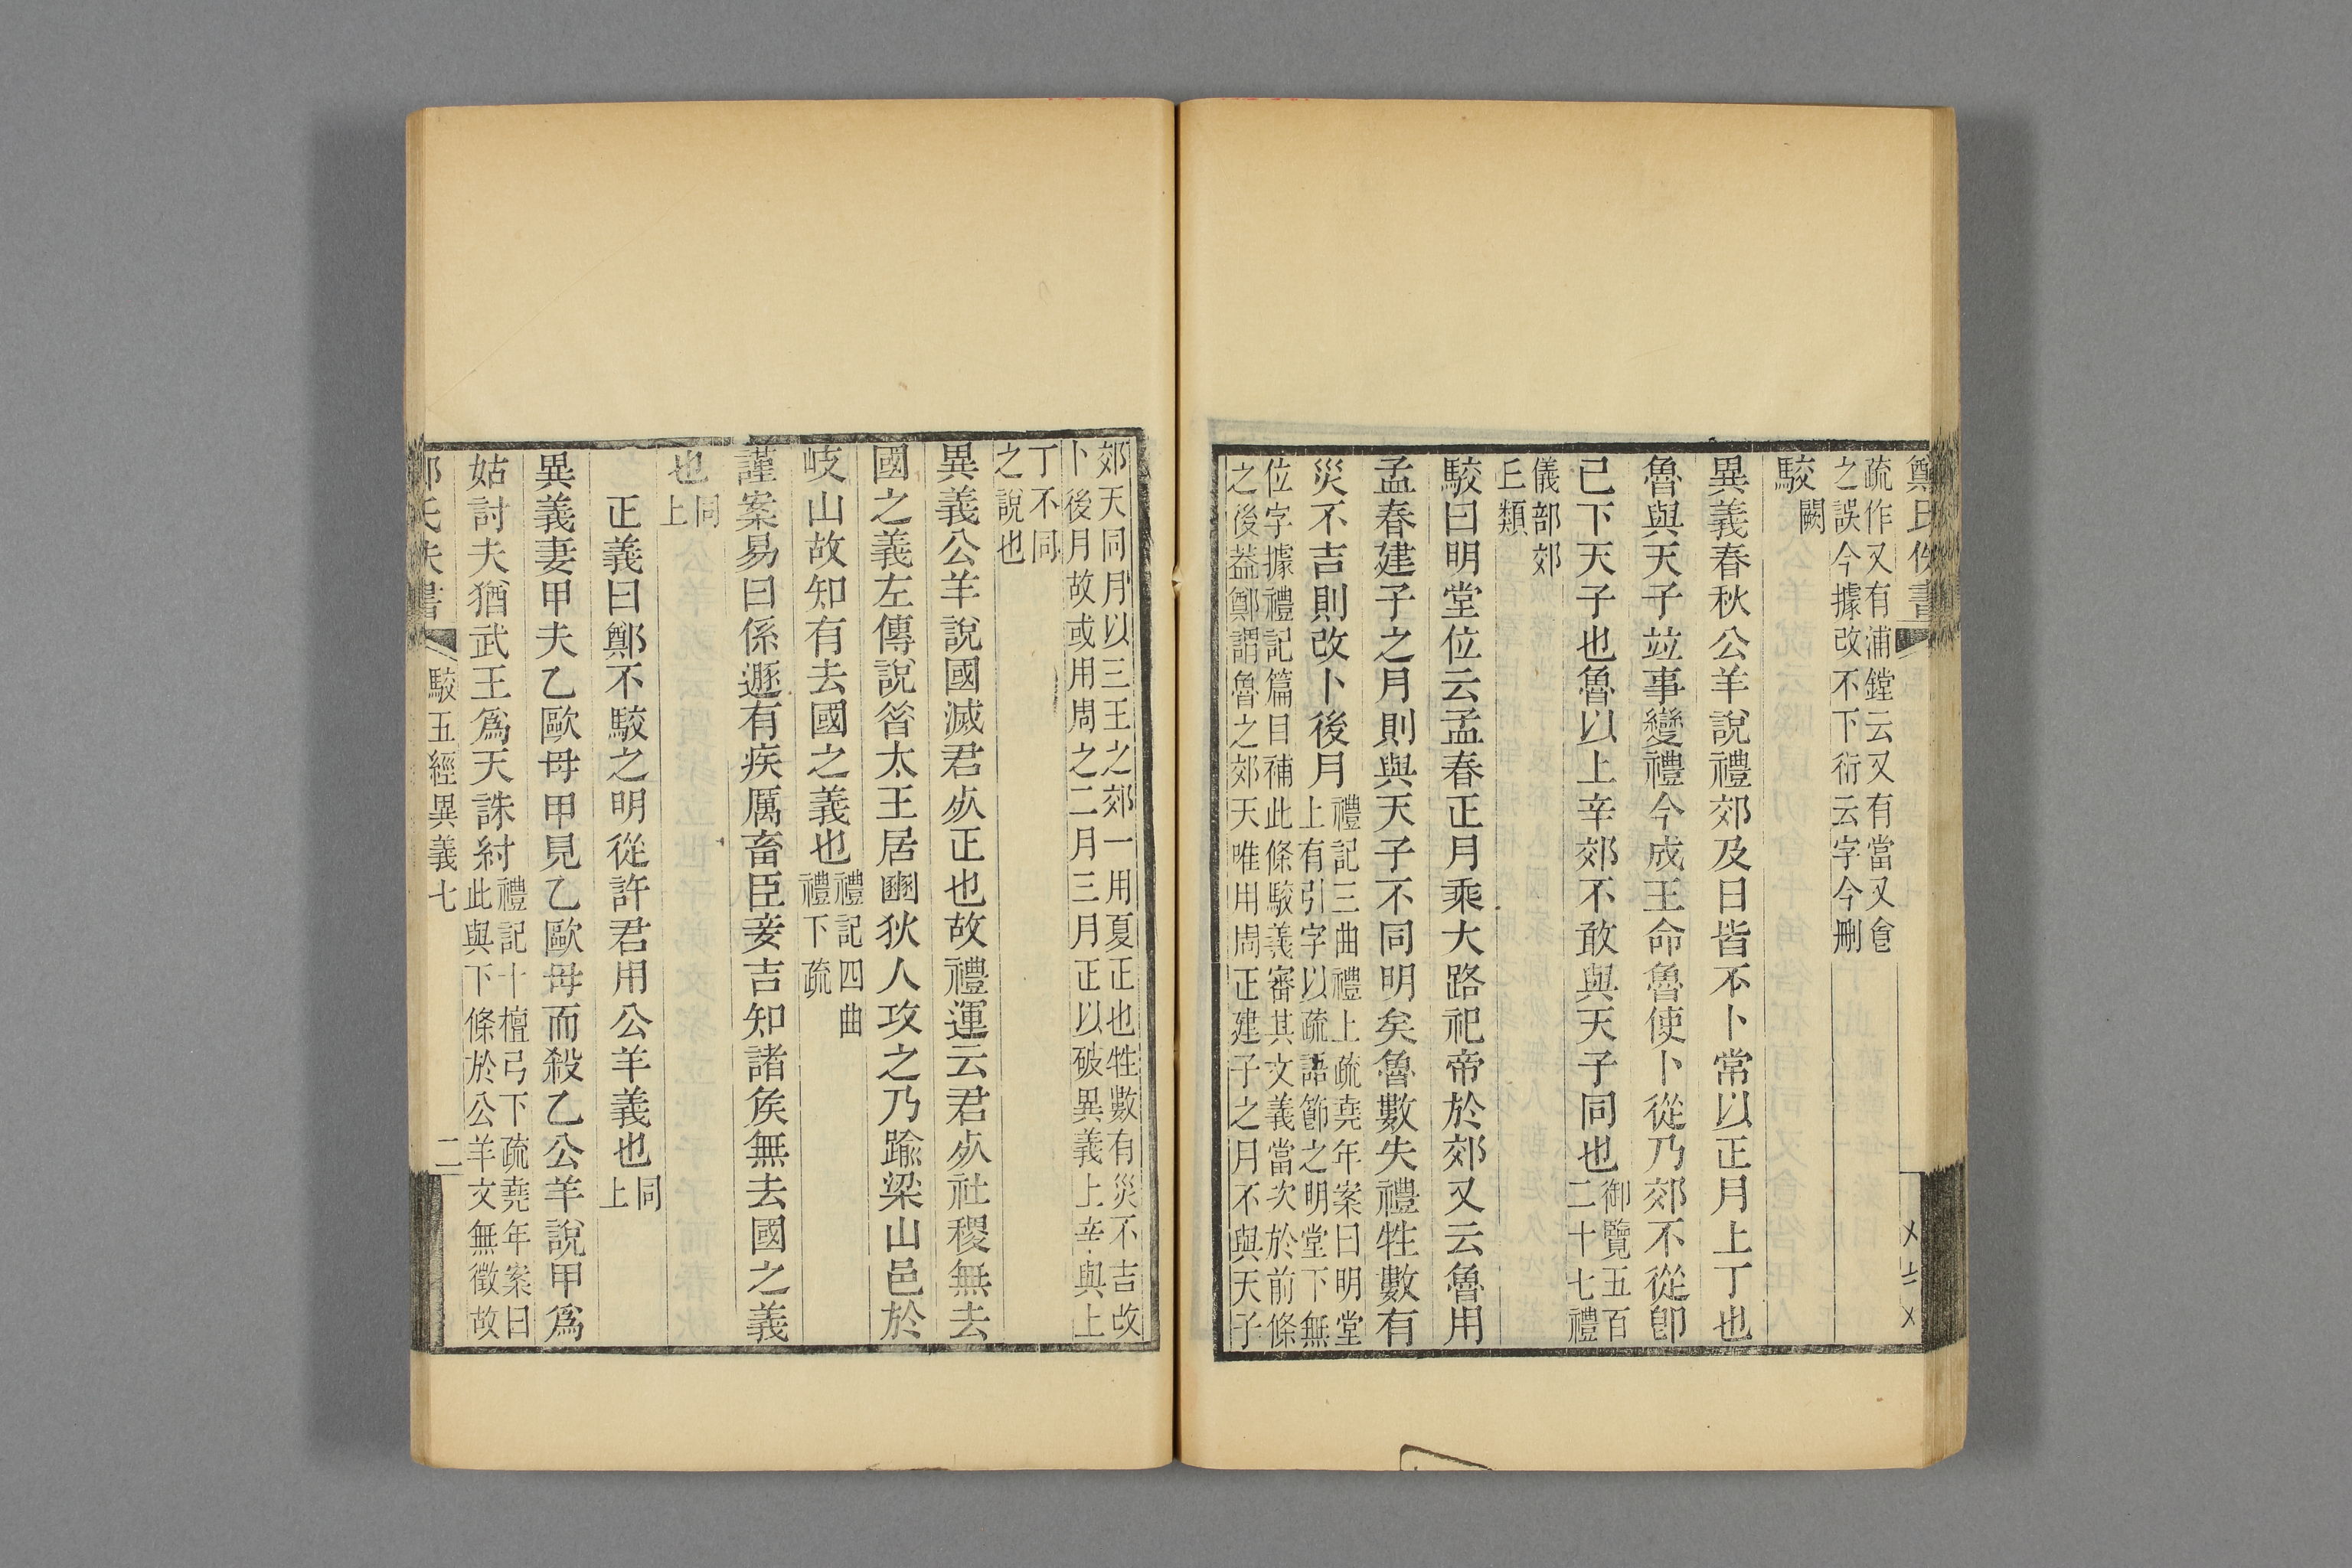 鄭氏佚書
疏作又有浦鏜云又有當又會
之誤今據改不下衍云字今刪
駮闕
異義春秋公羊說禮郊及日皆不卜常以正月上丁也
魯與天子竝事變禮今成王命魯使卜從乃郊不從卽
已下天子也魯以上辛郊不敢與天子同也御覽五百二十七禮
儀部郊
丘類
駮曰明堂位云孟春正月乘大路祀帝於郊又云魯用
孟春建子之月則與天子不同明矣魯數失禮牲數有
災不吉則改卜後月禮記三曲禮上疏堯年案曰明堂上有引字以疏語節之明堂下無
位字據禮記篇目補此條駮義審其文義當次於前條
之後葢鄭謂魯之郊天唯用周正建子之月不與天子
郊天同月以三王之郊一用夏正也牲數有災不吉改
卜後月故或用周之二月三月正以破異義上辛與上
丁不同
之說也
異義公羊說國滅君𣦸正也故禮運云君𣦸社稷無去
國之義左傳說昝太王居豳狄人攻之乃踰梁山邑於
岐山故知有去國之義也禮記四曲禮下疏
謹案易曰係遯有疾厲畜臣妾吉知諸矦無去國之義
也同上
正義曰鄭不駮之明從許君用公羊義也同上
異義妻甲夫乙歐母甲見乙歐母而殺乙公羊說甲爲
姑討夫猶武王爲天誅紂禮記十檀弓下疏堯年案曰此與下條於公羊文無徵故
鄭氏佚書 駮五經異義七 二